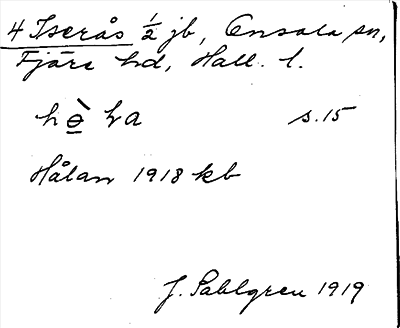 4 Iserås ½ jb, Onsala sn,
Fjäre hd, Hall. l.
s. 15
Hålan 1918 kb
J. Sahlgren 1919